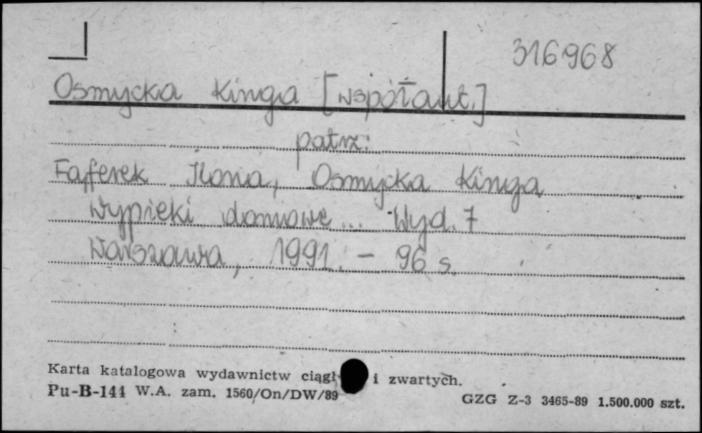 316968
Osmycka Kinga [współaut.]
patrz:
Fajferek Ilona, Osmycka Kinga
Wypieki domowe... Wyd. 7
Warszawa, 1991. - 96 s.
Karta katalogowa wydawnictw ciągł i zwartych.
Pu-B-144 W.A. zam. 1560/On/DW/89
GZG Z-3 3465-89 1.500.000 szt.